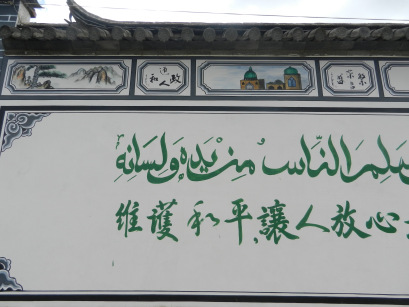 政通
人和
سَلِمَ النَّاسُ مِنْ يَدِهِ وَلِسَانِهِ
維護和平、讓人放心